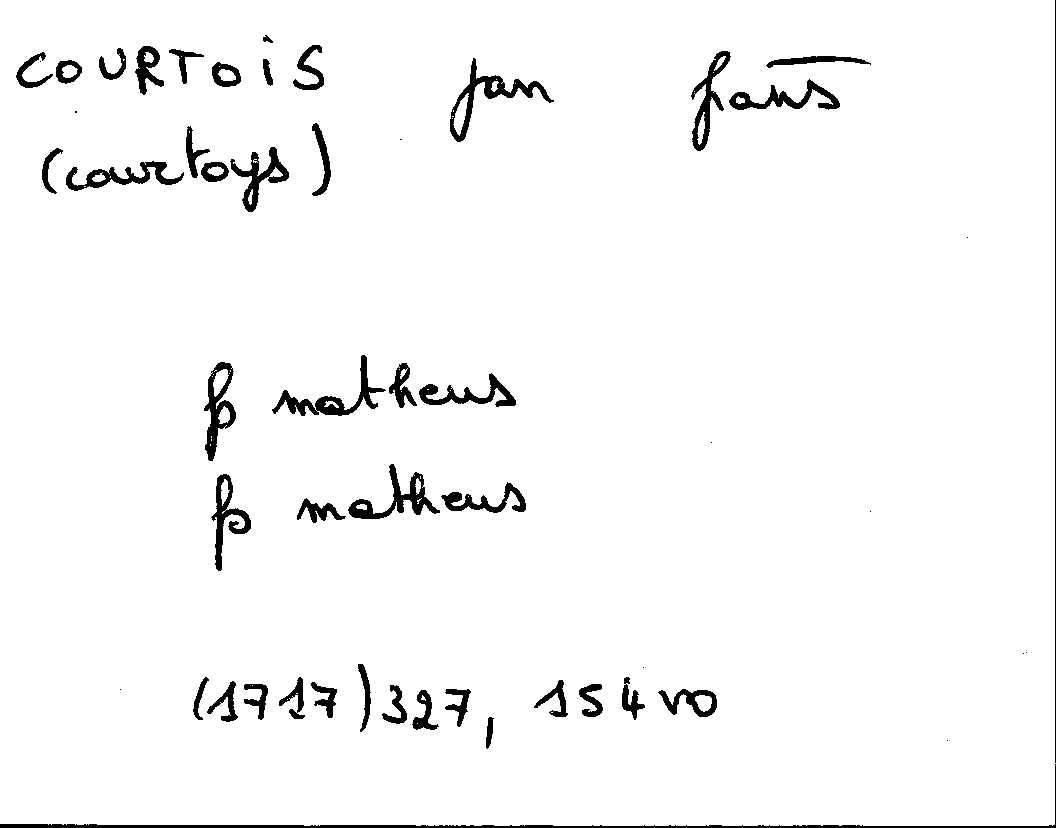 COURTOIS jan frans
(courtoys)
fs matheus
fs matheus
(1717) 327, 154 vo